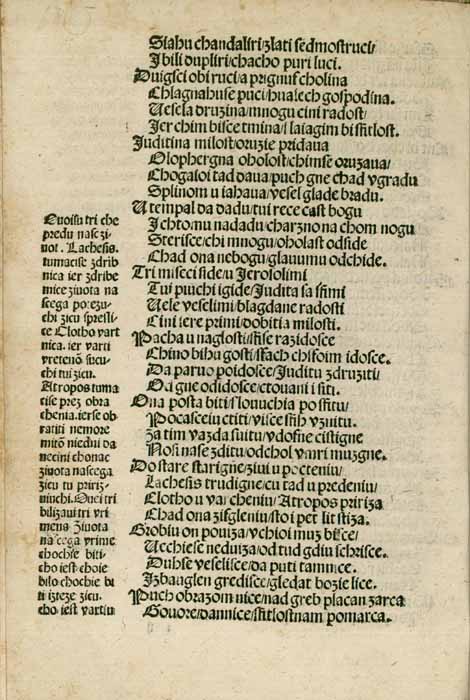 Siahu chandaliri/zlati sedmostruci/
I bili dupliri/chacho puri luci.
Duigsci obi ruci/a prignuf cholina
Chlagnahuse puci/hualech gospodina.
Uesela druzina/mnogu cini radost/
Jer chim bisce tmina/slaiagim bi sfitlost.
Juditina milost/oruzie pridaua
Olophergna oholost/chimse oruzaua/
Chogaloi tad daua/puch gne chad ugradu
Splinom u iahaua/uesel glade bradu.
U tempal da dadu/tui rece cast bogu
I chto mu nadadu/charzno na chom nogu
Sterisce/chi mnogu/oholast odside
Chad ona nebogu/glauumu odchide.
Tri miseci side/u Jerosolimi
Tui piuchi igide/Judita sa sfimi
Uele ueselimi/blagdane radosti
Cini iere primi/dobitia milosti.
Pacha u naglosti/sfise razidosce
Chino bihu gosti/sfach chisoim idosce.
Da paruo poidosce/Juditu zdruziti/
Od gne odidosce/ctouani i siti.
Ona posta biti/slouuchia po sfitu/
Pocasceiu ctiti/uisce sfih uznitu.
Za tim uazda suitu/udosne cistigne
Nosi nase zditu/odchol umri muzgne.
Do stare starigne/ziui u pocteniu/
Lachesis trudigne/cu tad u predeniu/
Clotho u uar cheniu/Atropos pririza
Chad ona zisgleniu/sto i pet lit stiza.
Grobiu on pouiza/uchioi muz bisce/
Uechiese neduiza/od tud gdiu schrisce.
Duhse ueselisce/da puti tamnice.
Izbauglen gredisce/gledat bozie lice.
Puch obrazom nice/nad greb placan zarca
Gouore/dannice/sfitlostnam pomarca.
Ouoisu tri che
predu nase zi/
uot. Lachesis.
tumacise zdrib
nica ier zdribe
nice ziuota na
scega po rezu/
chi zicu spresli/
ce Clotho uart
nica. ier uarti
uretenom sucu/
chi tui zicu.
Atropos tuma
cise prez obra
chenia. ierse ob
ratiti nemore
mitom niedni da
necini chonac
ziuota nascega
zicu tu pririz/
uiuchi. Ouei tri
bilizaui tri uri
mena ziuota
nascega urime
chochie biti/
cho iest choie
bilo chochie bi
ti izteze zicu.
cho iest uartiu